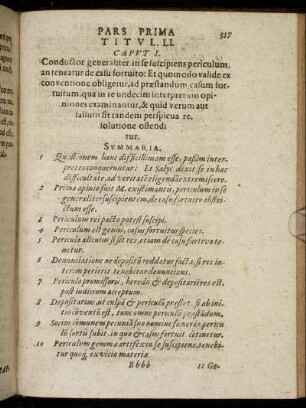 PARS PRIMA 517
TITVL. LI.
CAPVT I.
Conductor generaliter in se suscipiens periculum,
an teneatur de casu fortuito: Et quomodo valide ex
conventione obligetur, ad præstandum casum for-
tuitum, qua in re undecim interpretum opi-
niones examinantur, & quid verum aut
falsum sit tandem perspicua re-
solutione ostendi
tur.
SVMMARIA.
1 Quæstionem hanc difficillimam esse, passim inter-
pretes conqueruntur: Et Salyc. dixit se in hac
difficultate, ad veritatē eligendā extremiscere.
2 Prima opinio fuit M. existimantis, periculum in se
generaliter suscipientem, de casu fortuito obstri-
ctum esse.
3 Periculum rei pacto potest suscipi.
4 Periculum est genus, casus fortuitus species.
5 Periculo alicuius si sit res, etiam de casu fortuito te-
netur.
6 Denunciatione ne depositū reddatur facta, si res in-
terim perierit tenebitur denuncians.
7 Periculo promissoris, heredis & depositarii res est,
post indicium acceptum.
8 Depositarius, ut culpā & periculū præstet si ab ini-
tio cōventū est, tum omne periculū præstādum.
9 Socius cōmunem pecuniā suo nomine fœnerās, pericu-
lū sortis subit, in quo & casus fortuit. cōtinetur.
10 Periculum gemmæ artifex in se suscipiens, tenebi-
tur quoq; ex vicio materiæ.
Bbbb 11 Ge-